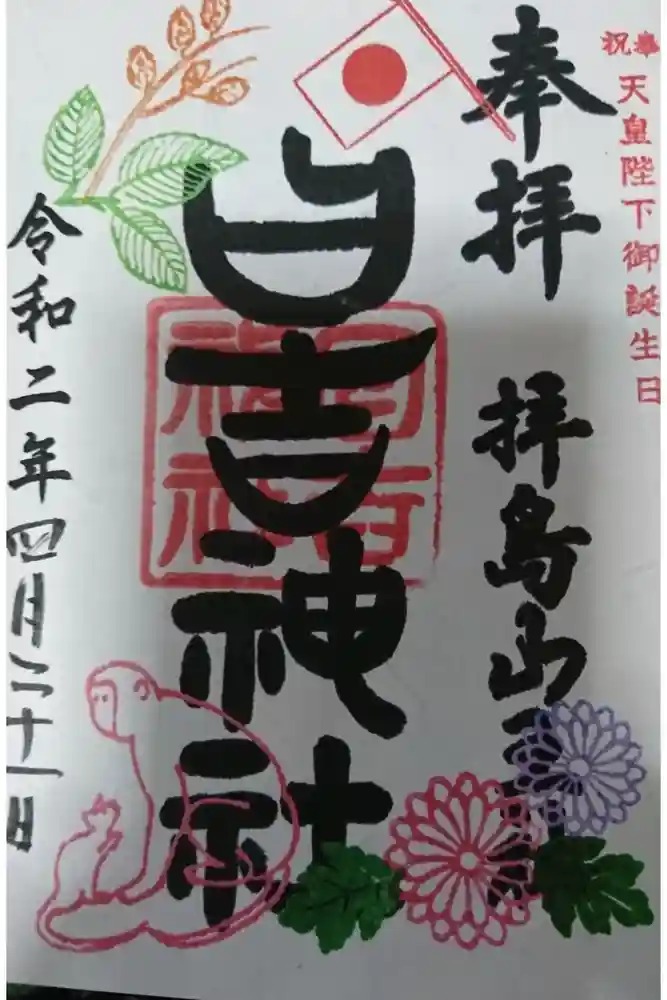 奉祝
天皇陛下御誕生日
奉拝 拝島山
日吉神社
日吉
神社
令和二年四月二十一日